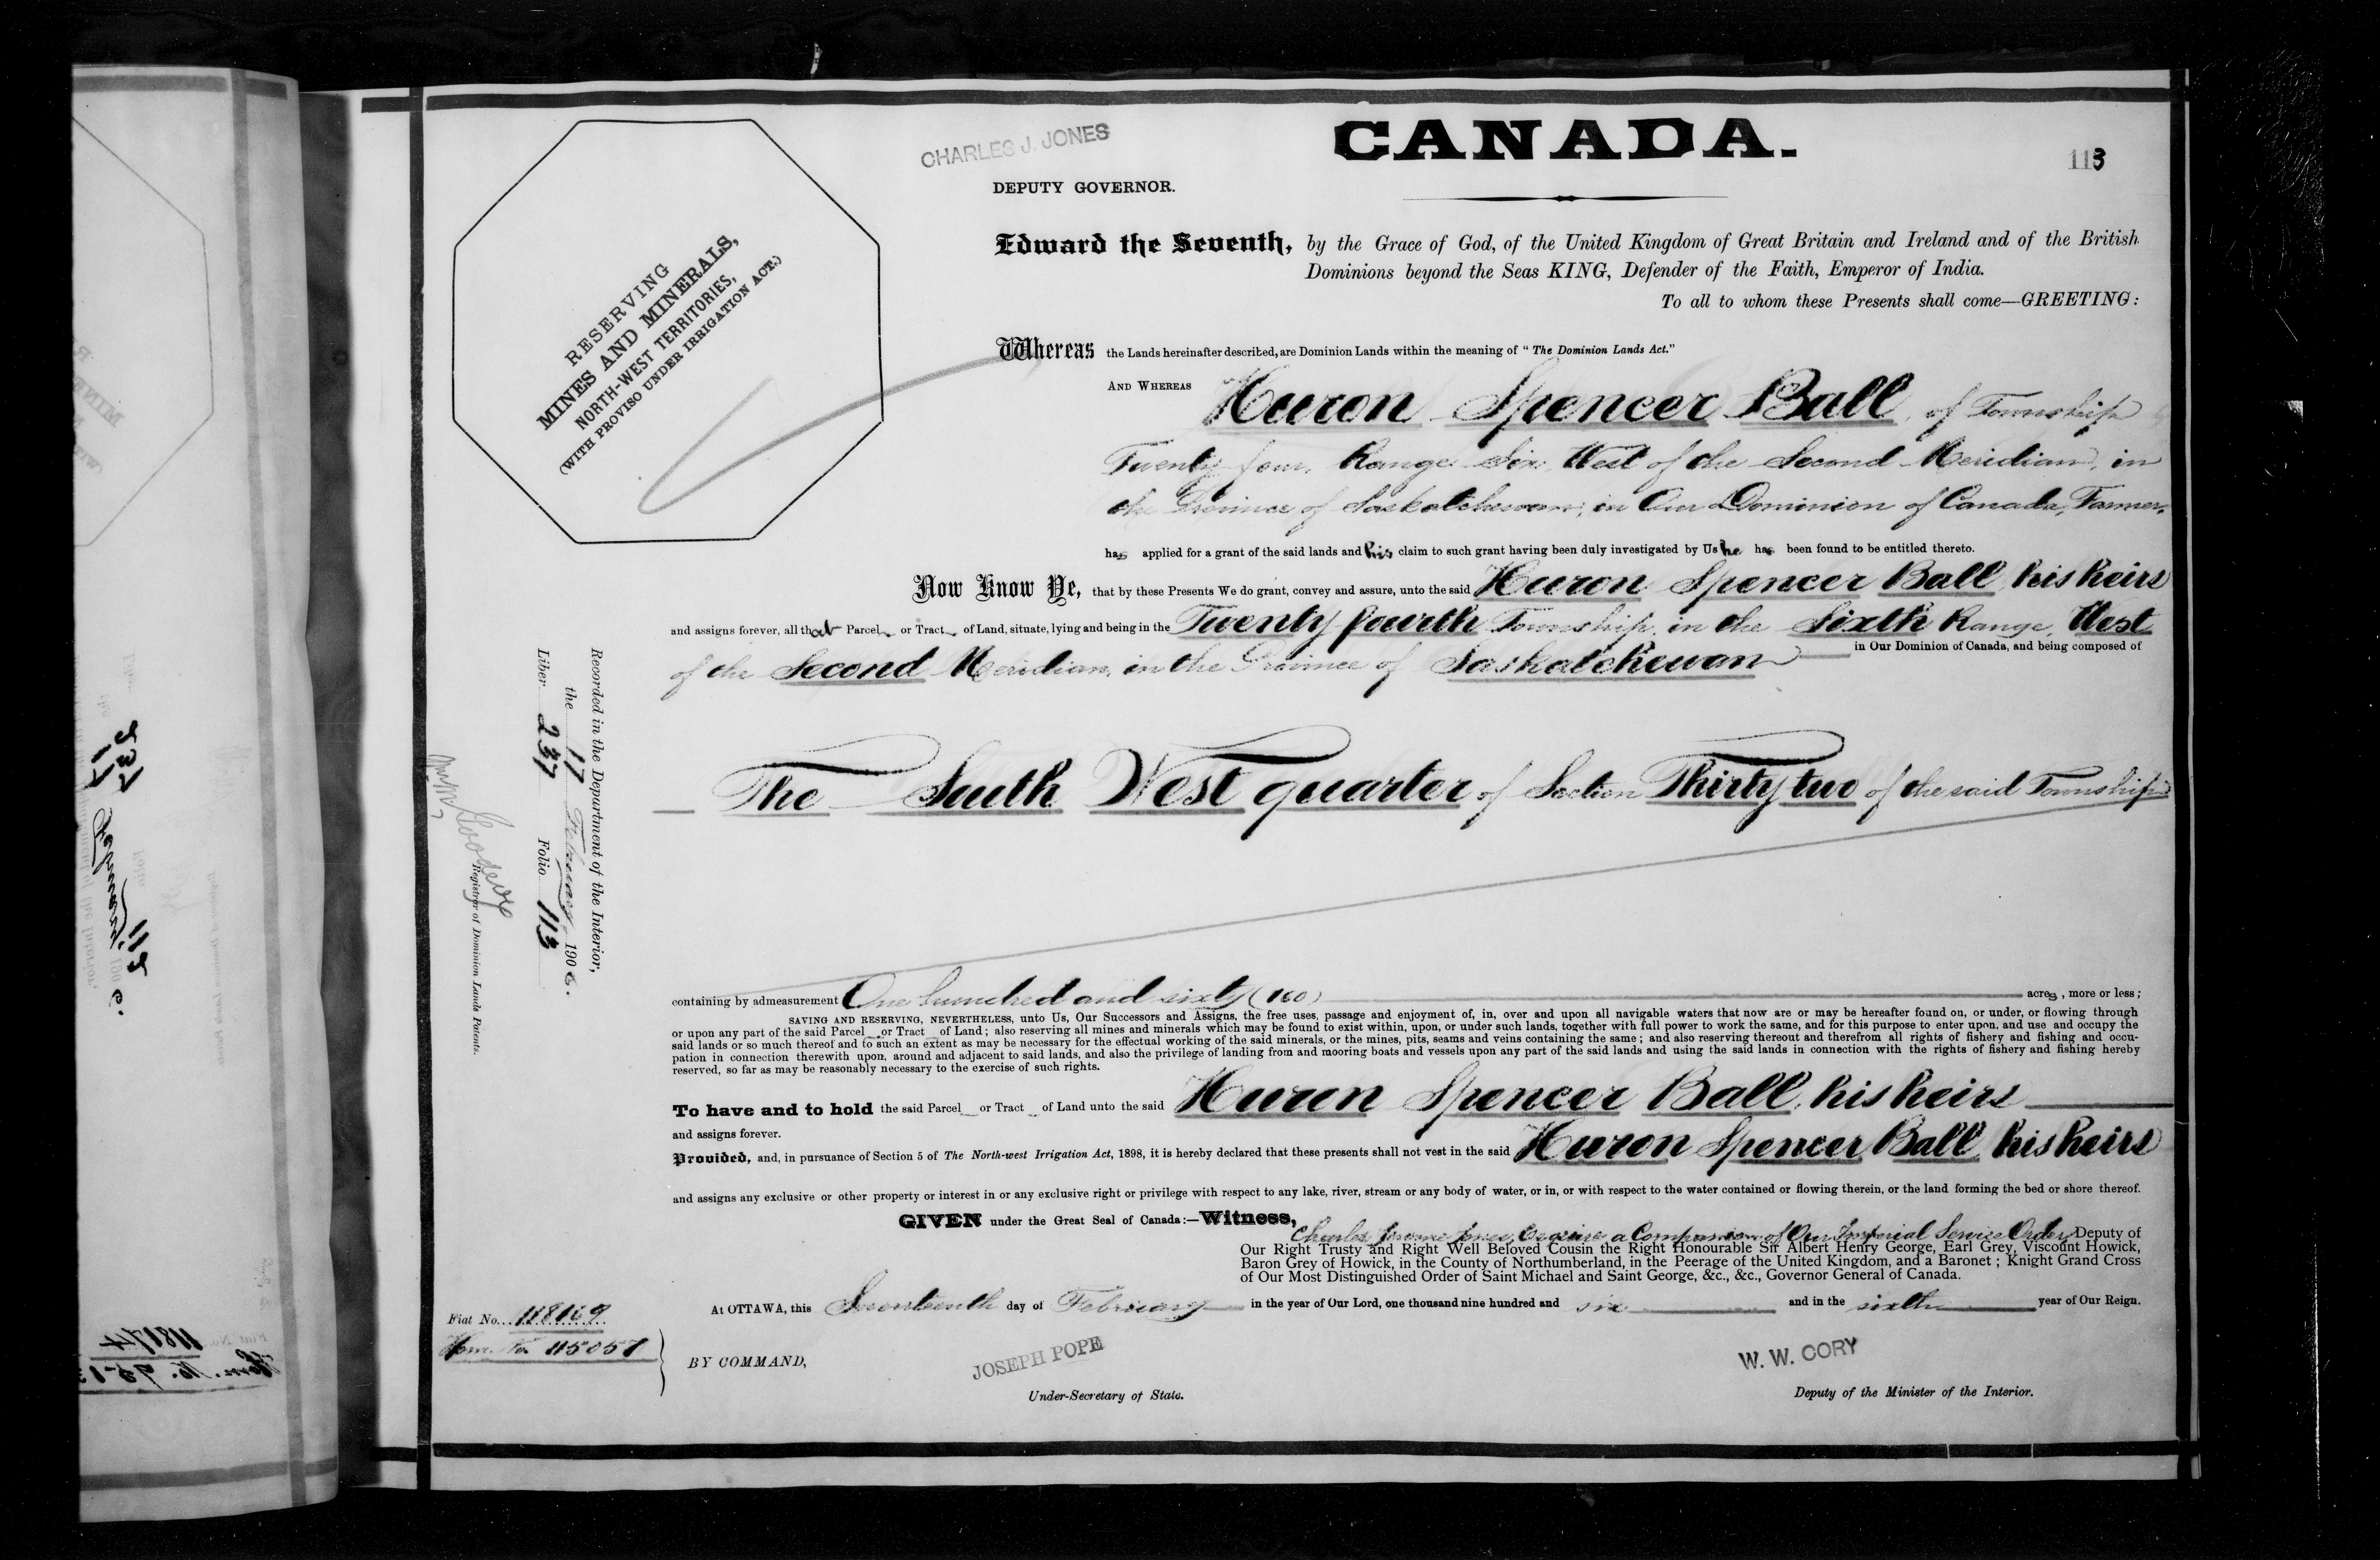 CHARLES J. JONES
CANADA.
113
DEPUTY GOVERNOR.
RESERVING
MINES AND MINERALS,
NORTH-WEST TERRITORIES,
(WITH PROVISO UNDER IRRIGATION ACT.)
Edward the Seventh, by the Grace of God, of the United Kingdom of Great Britain and Ireland and of the British
Dominions beyond the Seas KING, Defender of the Faith, Emperor of India.
To all to whom these Presents shall come—GREETING:
Whereas the Lands hereinafter described, are Dominion Lands within the meaning of "The Dominion Lands Act."
AND WHEREAS Huron Spencer Ball, of Township
Twenty four, Range Six West of the Second Meridian, in
the Province of Saskatchewan, in Our Dominion of Canada, Farmer,
has applied for a grant of the said lands and his claim to such grant having been duly investigated by Us he has been found to be entitled thereto.
Now Know Ye, that by these Presents We do grant, convey and assure, unto the said Huron Spencer Ball, his heirs
and assigns forever, all that Parcel or Tract of Land, situate, lying and being in the Twenty fourth Township, in the Sixth Range, West
of the Second Meridian, in the Province of Saskatchewan in Our Dominion of Canada, and being composed of
The South West quarter of Section Thirty two of the said Township
containing by admeasurement One hundred and sixty (160) acres, more or less;
SAVING AND RESERVING, NEVERTHELESS, unto Us, Our Successors and Assigns, the free uses, passage and enjoyment of, in, over and upon all navigable waters that now are or may be hereafter found on, or under, or flowing through
or upon any part of the said Parcel or Tract of Land; also reserving all mines and minerals which may be found to exist within, upon, or under such lands, together with full power to work the same, and for this purpose to enter upon, and use and occupy the
said lands or so much thereof and to such an extent as may be necessary for the effectual working of the said minerals, or the mines, pits, seams and veins containing the same; and also reserving thereout and therefrom all rights of fishery and fishing and occu-
pation in connection therewith upon, around and adjacent to said lands, and also the privilege of landing from and mooring boats and vessels upon any part of the said lands and using the said lands in connection with the rights of fishery and fishing hereby
reserved, so far as may be reasonably necessary to the exercise of such rights.
To have and to hold the said Parcel or Tract of Land unto the said Huron Spencer Ball, his heirs
and assigns forever.
Provided, and, in pursuance of Section 5 of The North-west Irrigation Act, 1898, it is hereby declared that these presents shall not vest in the said Huron Spencer Ball, his heirs
and assigns any exclusive or other property or interest in or any exclusive right or privilege with respect to any lake, river, stream or any body of water, or in, or with respect to the water contained or flowing therein, or the land forming the bed or shore thereof.
GIVEN under the Great Seal of Canada:—Witness,
Charles Jerome Jones, Esquire a Companion of Our Imperial Service Order, Deputy of
Our Right Trusty and Right Well Beloved Cousin the Right Honourable Sir Albert Henry George, Earl Grey, Viscount Howick,
Baron Grey of Howick, in the County of Northumberland, in the Peerage of the United Kingdom, and a Baronet; Knight Grand Cross
of Our Most Distinguished Order of Saint Michael and Saint George, &c., &c., Governor General of Canada.
At OTTAWA, this Seventeenth day of February in the year of Our Lord, one thousand nine hundred and six and in the sixth year of Our Reign.
Fiat No. 118169
Hom. No. 115057
BY COMMAND,
JOSEPH POPE
Under-Secretary of State.
W. W. CORY
Deputy of the Minister of the Interior.
Recorded in the Department of the Interior,
the 17 February 1906.
Liber 237 Folio 113
Wm. M. Goodeve
Registrar of Dominion Lands Patents.